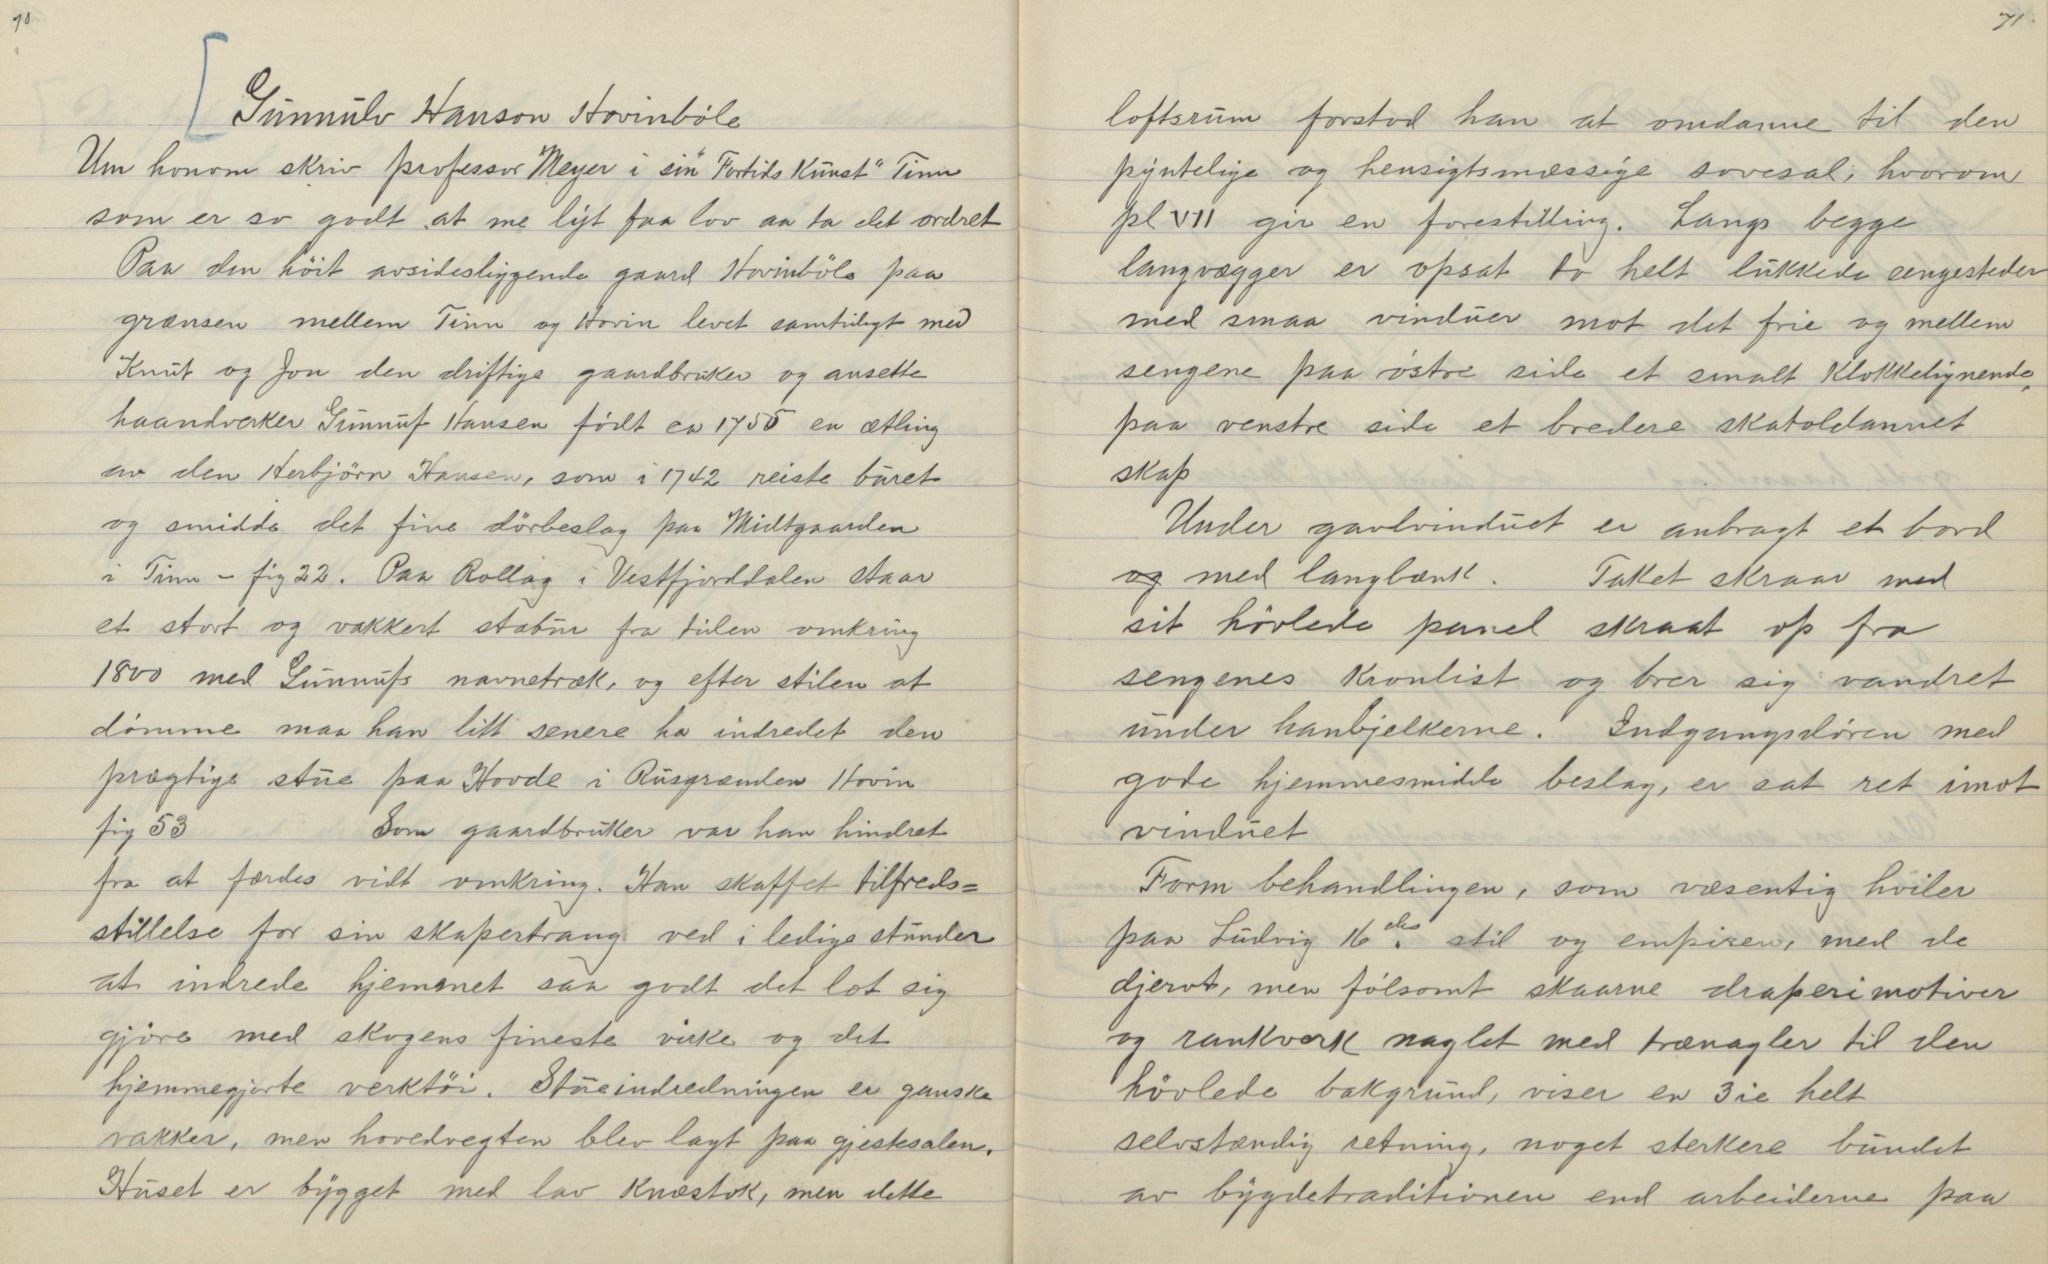 70
Gunnulv Hanson Hovinböle
Um honom skriv professor Meyer i sin "Fortids Kunst" Tinn
som er so godt at me lyt faa lov aa ta det ordret
Paa den höit avsidesliggende gaard Hovinböle paa
grænsen mellem Tinn og Hovin levet samtidigt med
Knut og Jon den driftige gaardbruker og ansette
haandverker Gunnuf Hansen födt ca 1755 en ætling
av den Herbjörn Hansen, som i 1742 reiste buret
og smidde det fine dörbeslag paa Midtgaarden
i Tinn - fig 22. Paa Rollag i Vestfjorddalen staar
et stort og vakkert stabur fra tiden omkring
1800 med Gunnufs navnetræk, og efter stilen at
dömme maa han litt senere ha indredet den
prægtige stue paa Hovde i Busgrænden Hovin
fig 53 Som gaardbruker var han hindret
fra at færdes vidt omkring. Han skaffet tilfreds=
stillelse for sin skapertrang ved i ledige stunder
at indrede hjemmet saa godt det lot sig
gjöre med skogens fineste virke og det
hjemmegjorte verktöi. Stueindredningen er ganske
vakker, men hovedvegten blev lagt paa gjestesalen.
Huset er bygget med lav knæstok, men dette
71
loftsrum forstod han at omdanne til den
pyntelige og hensigtsmæssige sovesal, hvorom
pl VII gir en forestilling. Langs begge
langvægger er opsat to helt lukkede sengesteder
med smaa vinduer mot det frie og mellem
sengene paa östre side et smalt klokkelignende,
paa venstre side et bredere skatoldannet
skap
Under gavlvinduet er anbragt et bord
og med langbænk. Taket skraar med
sit hövlede panel skraat op fra
sengenes kronlist og brer sig vandret
under hanbjelkerne. Indgangsdören med
gode hjemmesmidde beslag, er sat ret imot
vinduet
Form behandlingen, som væsentig hviler
paa Ludvig 16des. stil og empiren, med de
djervt, men fölsomt skaarne draperimotiver
og rankverk naglet med trænagler til den
hövlede bakgrund, viser en 3ie helt
selvstændig retning, noget sterkere bundet
av bygdetraditionen end arbeiderne paa